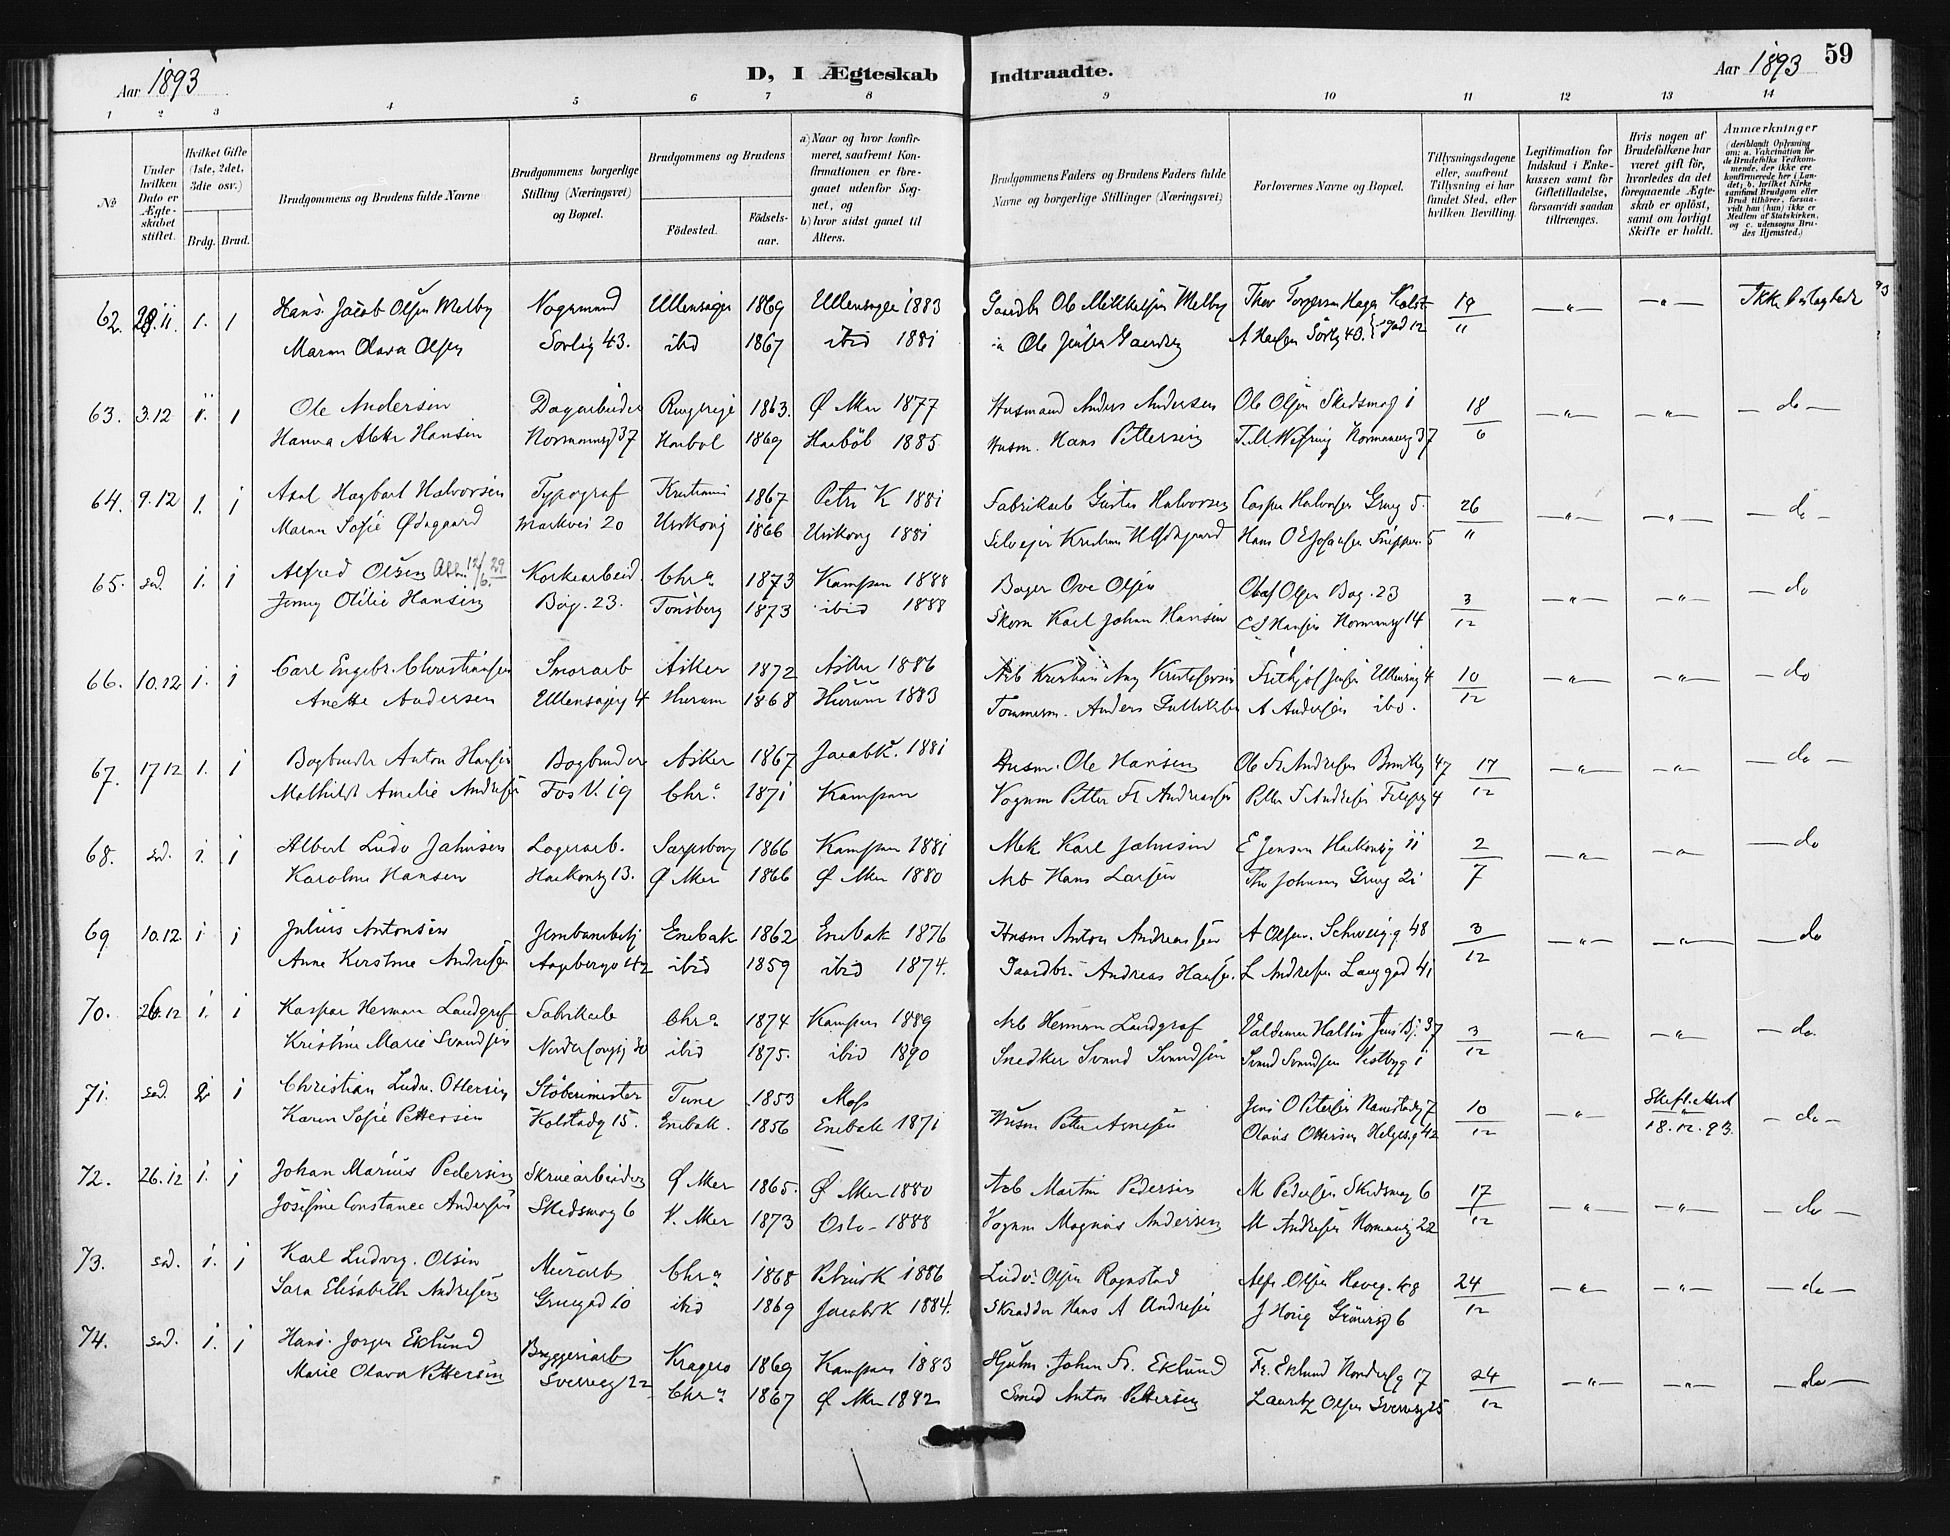 Aar 1893
D, I Ægteskab Indtraadte.
Aar 1893 59
1 2 3 4 5 6 7 8 9 10 11 12 13 14
№
Under hvilken Dato er Ægteskabet stiftet.
Hvilket Gifte (1ste, 2det, 3die osv.)
Brdg. Brud.
Brudgommens og Brudens fulde Navne
Brudgommens borgerlige Stilling (Næringsvei) og Bopæl.
Brudgommens og Brudens
Fødested. Fødselsaar.
a) Naar og hvor konfirmeret, saafremt Konfirmationen er foregaaet udenfor Sognet, og
b) hvor sidst gaaet til Alters.
Brudgommens Faders og Brudens Faders fulde Navne og borgerlige Stillinger (Næringsvei)
Forlovernes Navne og Bopæl.
Tillysningsdagene eller, saafremt Tillysning ei har fundet Sted, efter hvilken Bevilling.
Legitimation for Indskud i Enkekassen samt for Giftetilladelse, forsaavidt saadan tiltrænges.
Hvis nogen af Brudefolkene har været gift før, hvorledes da det foregaaende Ægteskab er opløst, samt om lovligt Skifte er holdt.
Anmærkninger (deriblandt Oplysning om: a. Vakcination for de Brudefolks Vedkommende, der ikke ere konfirmerede her i Landet; b. hvilket Kirkesamfund Brudgom eller Brud tilhører, forsaavidt han (hun) ikke er Medlem af Statskirken, og c. udensogns Brudes Hjemsted.)
62. 11. 1. 1 Hans Jacob Olsen Melby Vognmand Ullensager 1869 Ullensager 1883 Gaardbr Ole Mikkelsen Melby 19/11 —"— —"— Ikk beslægtede
Maren Olava Olsen Sorlig 43. ibid 1867 ibid 1881 Ole Jensen A Hansen Sorlig 43. gad 12
63. 3.12 1. 1 Ole Andersen Dagarbeider Ringerige 1863. Ø Aker 1877 Husmand Anders Andersen Ole Olsen Skedsmog 1 18/6 —"— —"— — do —
Hanna Aleks Hansen Normannsg 37 Haabol 1869 Haabøl 1885 Husm. Hans Pettersen Normannsg 37
64. 9.12 1. 1 Axel Hagbart Halvorsen Typograf Kristiania 1867 Petri K 1881 Fabrikarb Gustav Halvorsen Casper Halvorsen Grueg 5. 26/11 —"— —"— — do —
Maren Sofie Ødegaard Markvei 20 Urskoug 1866 Urskoug 1881 Selveier Kristian Ødegaard Hans O 5
65. sad. 1. 1 Alfred Olsen 12/6 29 Korkearbeid. Chra. 1873 Kampen 1888 Bager Ove Olsen Olaf Olsen Bog. 23 3/12 —"— —"— — do
Jenny Otilie Hansen Bog. 23. Tønsberg 1873 ibid 1888 Skom Karl Johan Hansen C J Hansen Normannsg 14
66. 10.12 1. 1 Carl Engebr. Christiansen Smorarb Asker 1872 Asker 1886 Arb Kristian Aug Kristofersen Frithjof Jensen Ullensag 4 10/12 —"— —"— — do
Anette Andersen Ullensagerg 4 Hurum 1868 Hurum 1883 Tommerm. Anders A Andersen ibd.
67. 17 12 1. 1 Bogbinder Anton Hansen Bogbinder Asker 1867 JacobK. 1881 Husm. Ole Hansen Ole Fr Andresen 47 17/12 —"— —"— — do —
Mathilde Amalie Andresen Fos V. 19 Chr. 1871 Kampen Vognm Petter Fr Andreassen Petter F Andresen 4
68. sad. 1. 1 Albert Ludv Jahnsen Lagerarb. Sarpsborg 1866 Kampen 1881 Mek Karl Jahnsen E Jensen Haakonsg 11 2/7 —"— —"— — do
Karoline Hansen Haakonsg 13. Ø Aker 1866 Ø Aker 1880 Arb Hans Larsen Johansen Grueg 21
69 10.12 1 1 Julius Antonsen Jernbanebetj Enebak 1862 Enebak 1876 Husm Anton Andreassen A Olsen. Schweig. g 48 3/12 —"— —"— — do
Anne Kirstine Andresen Aagebergv 42 ibid 1859 ibid 1874. Gaardbr. Andreas Hansen. L Andresen Langgad 41
70. 26.12 1. 1 Kaspar Herman Landgraf Fabrikarb Chra. 1874 Kampen 1889 Arb Herman Landgraf Valdemar Hallin Jens Bj. 37 3/12 —"— —"— — do
Kristine Marie Svendsen 30 ibid 1875. ibid 1890 Snedker Svend Svendsen Svend Svendsen 1
71. sad. 2 1 Christian Ludv. Ottersen Støberimester Tune 1853 Moss 10/12 —"— Skifteattest 18.12.93. — do —
Karen Sofie Pettersen Kolstadg 15. Enebak. 1856 Enebak 1871 Husm Petter Arnesen Jens O Petersen 7 Olavis Ottersen Helgesg 42
72. 26.12 1. 1 Johan Marius Pedersen Skruearbeider Ø Aker 1865. Ø Aker 1880 Arb Martin Pedersen M Pedersen Skedsmog 6 17/12 —"— —"— — do —
Josefine Constance Andersen Skedsmog 6 V. Aker 1873 Oslo- 1888 Vognm Magnus Andersen M Andresen Normansg 22
73. sad. 1. 1 Karl Ludvig. Olsen Murarb Chra 1868 PetrusK 1886 Ludv. Olsen Rognstad Alfr. Olsen Haveg. 48 24/12 —"— —"— — do —
Sara Elisabeth Andresen Gruegad 10 ibid 1869 JacobsK 1884. Skrædder Hans A Andresen J Hoiig 6
74. sad. 1. 1 Hans. Jorgen Eklund Bryggeriarb Kragerø 1869 Kampen 1883 Hjulm. Johan Fr. Eklund Fr. Eklund Nonderfg 17 24/12 —"— —"— — do —
Marie Olava Pettersen Sverreg 22 Chra 1867 Ø Aker 1882 Smed Anton Pettersen Lauritz Olsen Sverresg 25